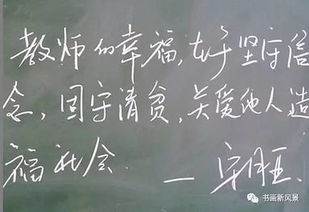 教师的幸福,在于坚守信
念,固守清贫,关爱他人造
福社会.
—
书画新风景